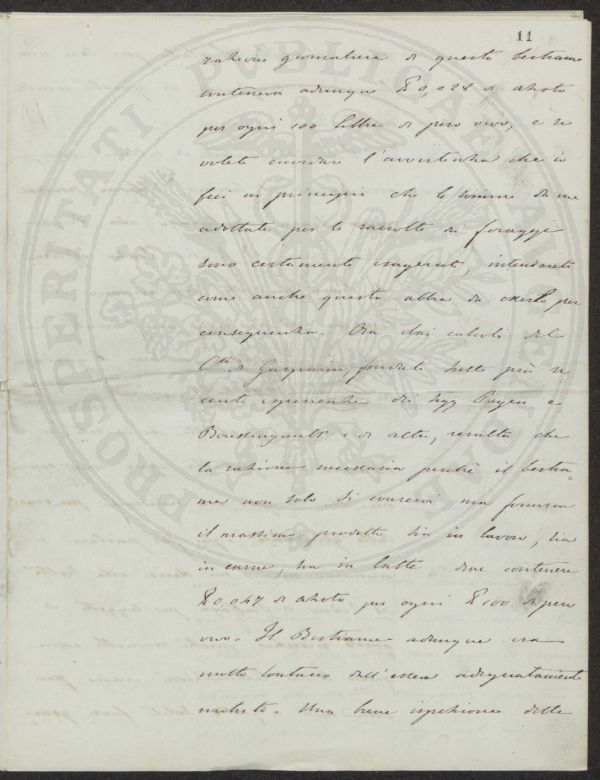 11
razione giornaliera di questo bestiame
conteneva adunque ℔ 0,028 di azoto
per ogni 100 libbre di peso vivo, e se
volete ricordare l'avvertenza che io
feci in principio che le somme da me
adottate per le raccolte di foraggi
sono certamente esagerate, intenderete
come anche questa abbia da esserlo per
conseguenza. Ora dai calcoli del
C.te di Gasparin, fondati sulle più re
centi esperienze dei Sigg Payen e
Boussingault e di altri, resulta che
la razione necessaria perchè il bestia=
me non solo si conservi ma fornisca
il massimo prodotto sia in lavoro, sia
in carne, sia in latte, deve contenere
℔ 0,047 di azoto per ogni ℔ 100 di peso
vivo. Il Bestiame adunque era
molto lontano dall'esser adeguatamente
nutrito. Una breve ispezione delle
PROSPERITATI PUBLICAE AUGENDAE